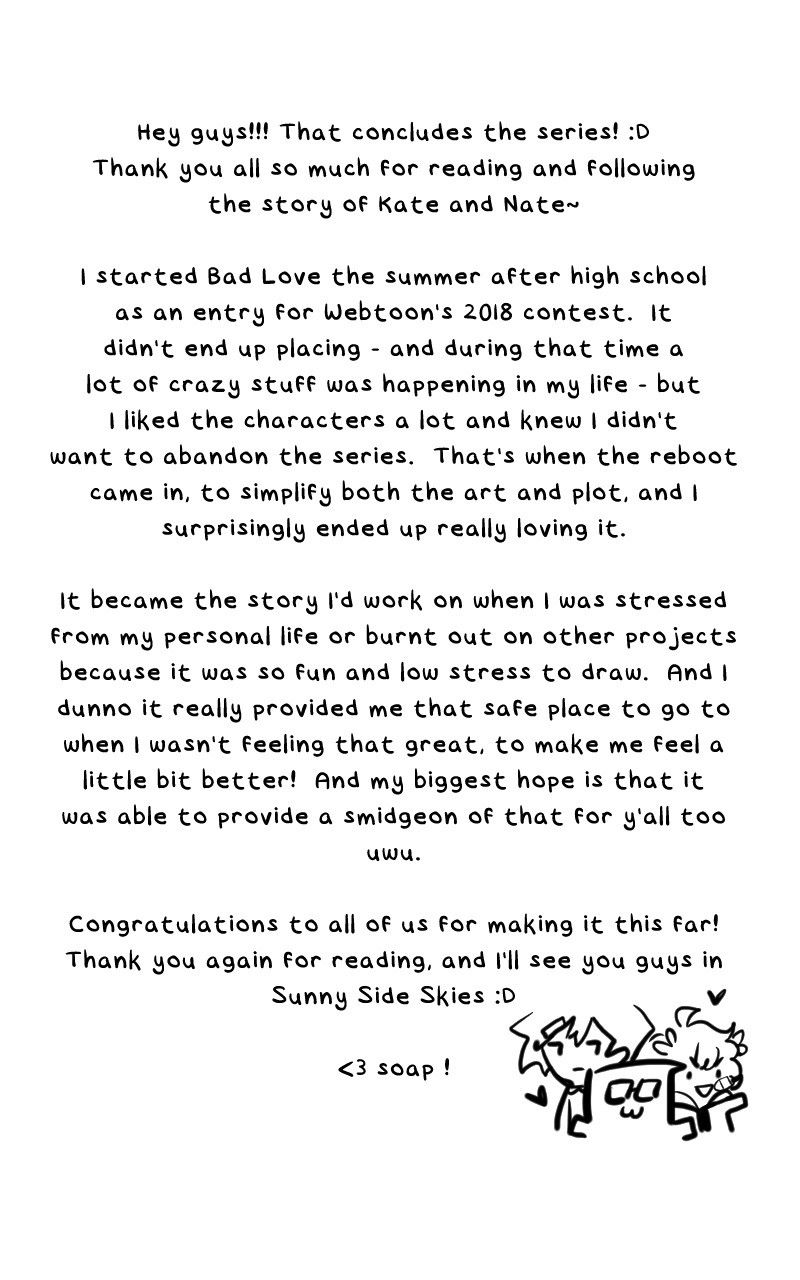 Hey guys!!! That concludes the series! :D
Thank you all so much for reading and following
the story of Kate and Nate~
I started Bad Love the summer after high school
as an entry for Webtoon's 2018 contest.  It
didn't end up placing - and during that time a
lot of crazy stuff was happening in my life - but
I liked the characters a lot and knew I didn't
want to abandon the series.  That's when the reboot
came in, to simplify both the art and plot, and I
surprisingly ended up really loving it.
It became the story I'd work on when I was stressed
from my personal life or burnt out on other projects
because it was so fun and low stress to draw.  And I
dunno it really provided me that safe place to go to
when I wasn't feeling that great, to make me feel a
little bit better!  And my biggest hope is that it
was able to provide a smidgeon of that for y'all too
uwu.
Congratulations to all of us for making it this far!
Thank you again for reading, and I'll see you guys in
Sunny Side Skies :D
<3 soap !